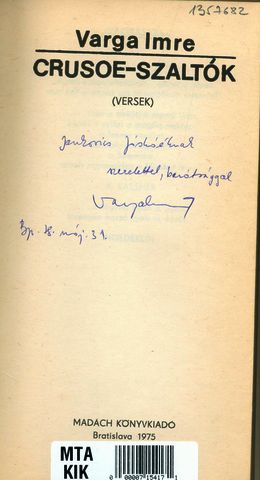 1357682
Varga Imre
CRUSOE-SZALTÓK
(VERSEK)
Jankovics Józsiéknak
szeretettel, barátsággal
Varga Imre
Bp. máj. 31.
MADÁCH KÖNYVKIADÓ
Bratislava 1975
MTA
KIK
0 00007 15417 1